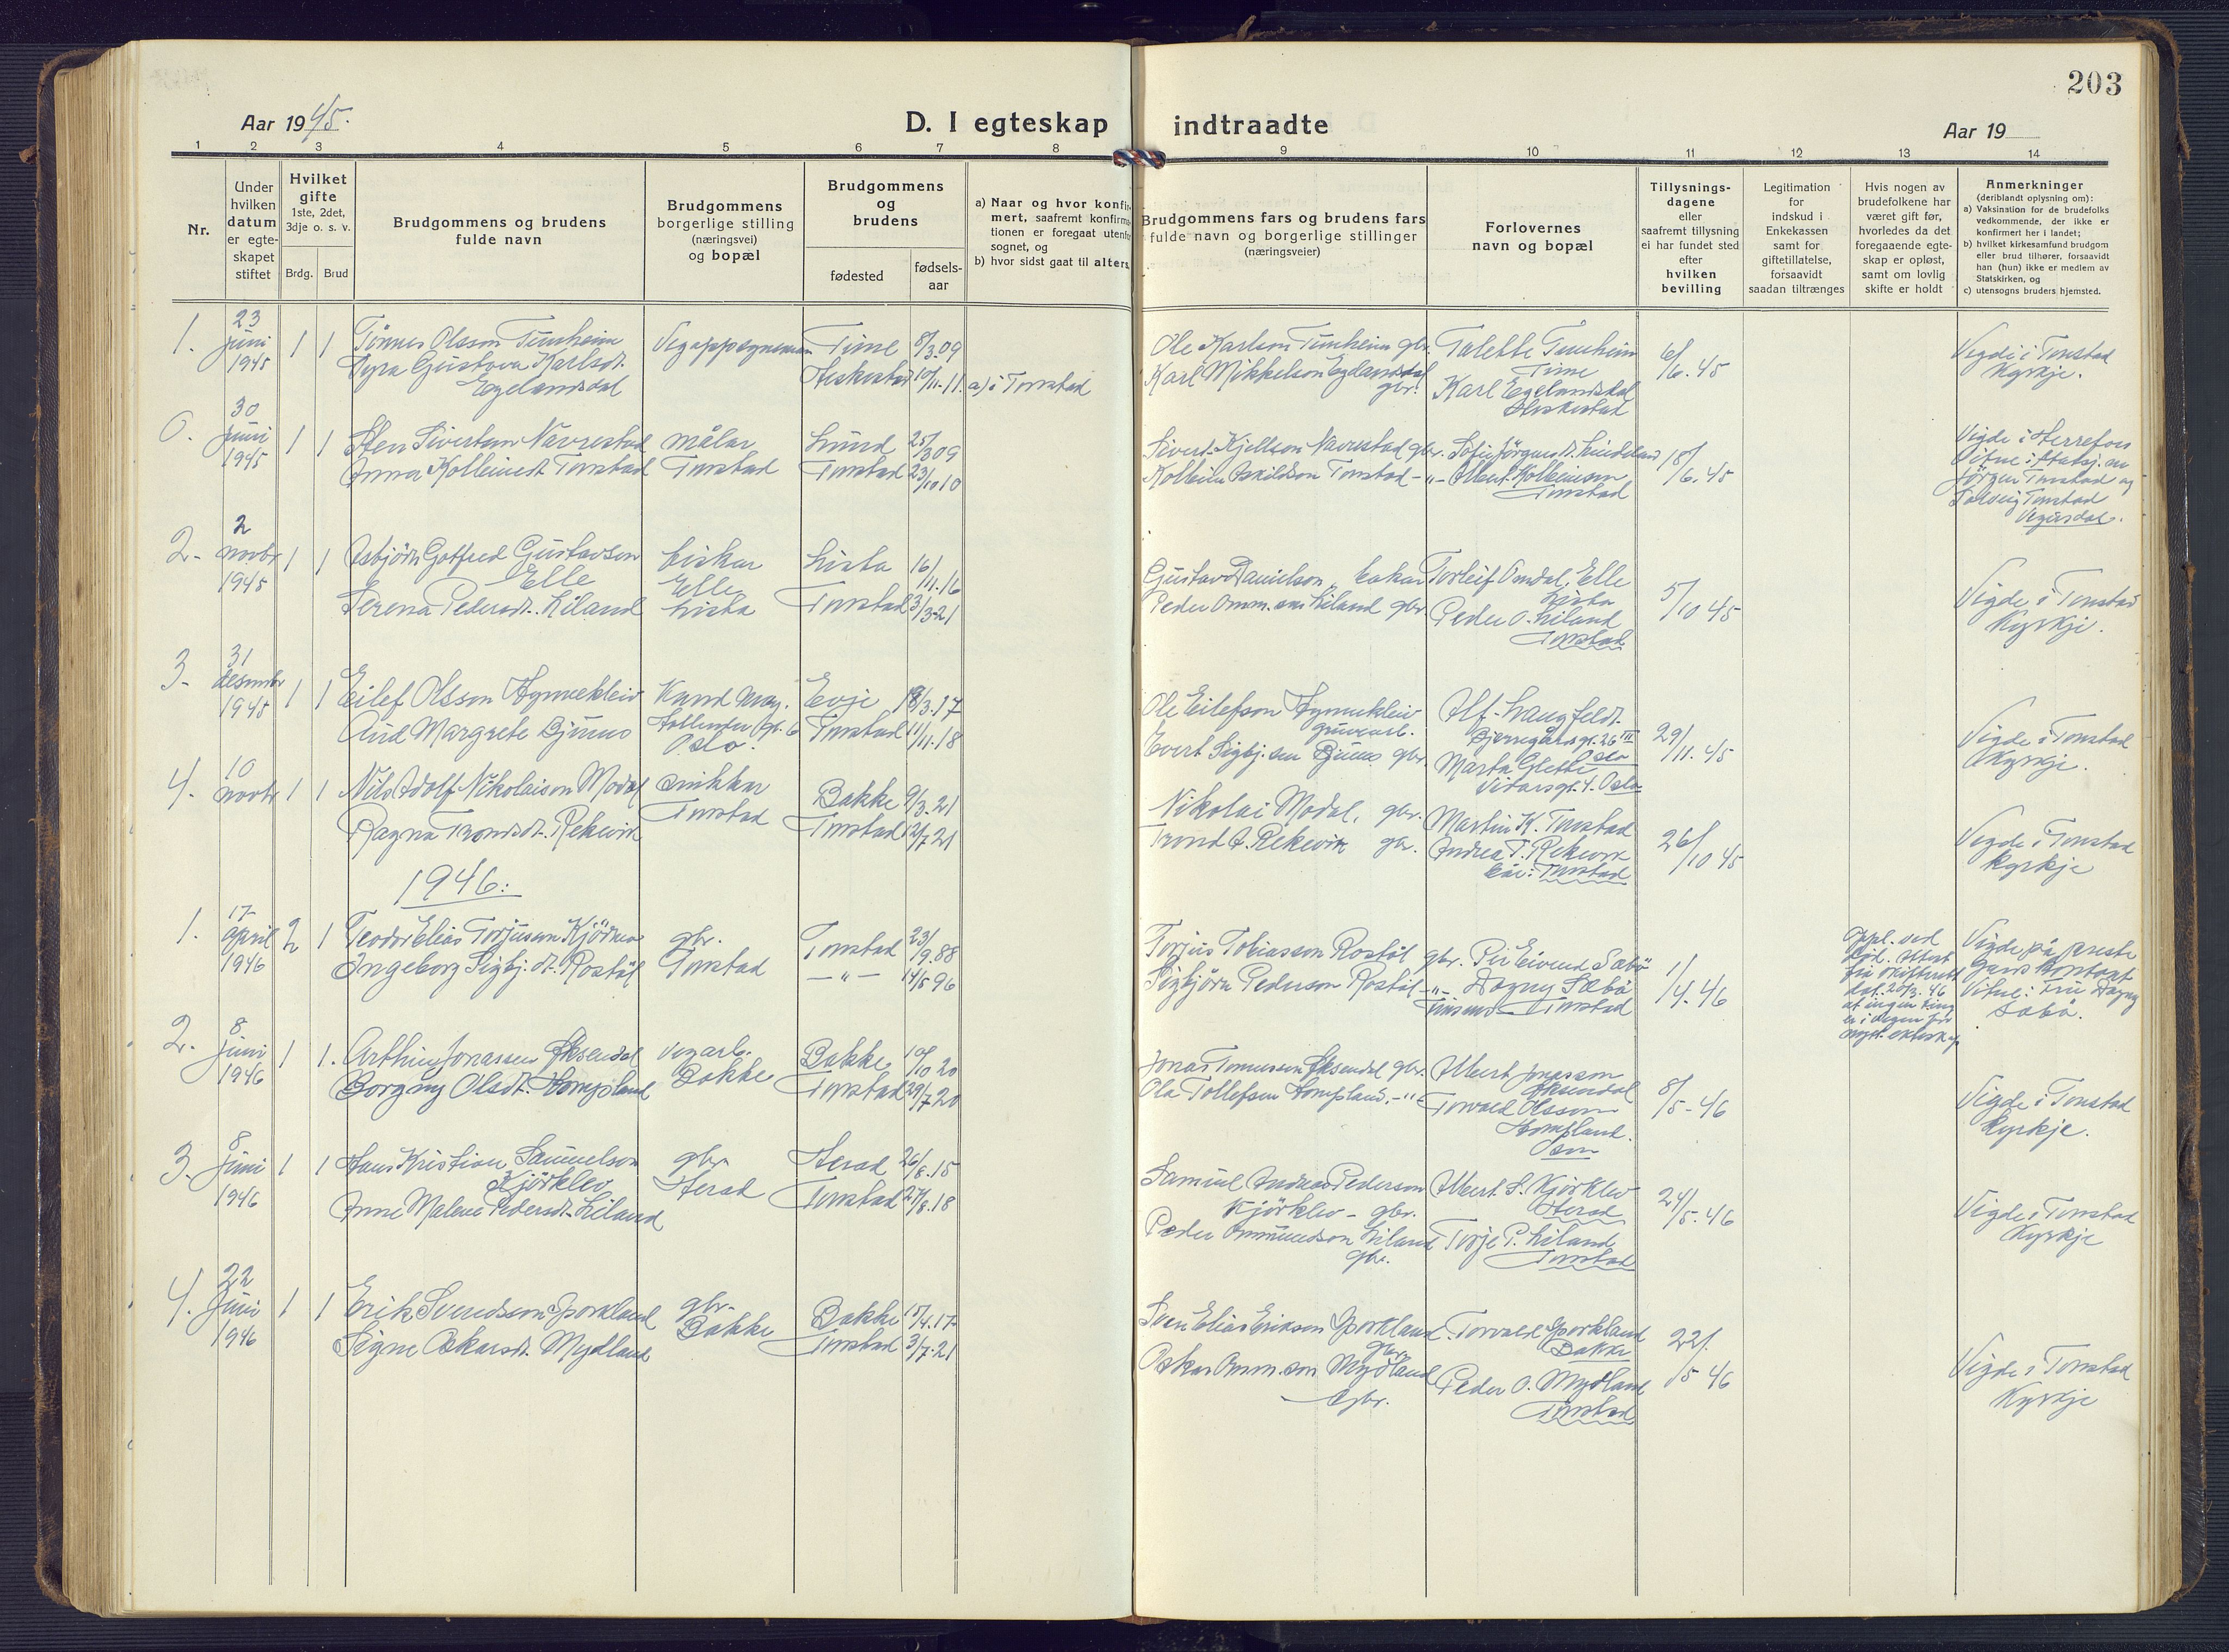 203
Aar 1945.
D. I egteskap indtraadte
Aar 19
1 2 3 4 5 6 7 8 9 10 11 12 13 14
Nr.
Under
hvilken
datum
er egte-
skapet
stiftet
Hvilket
gifte
1ste, 2det,
3dje o. s. v.
Brdg. Brud
Brudgommens og brudens
fulde navn
Brudgommens
borgerlige stilling
(næringsvei)
og bopæl
Brudgommens
og
brudens
fødested
fødsels-
aar
a) Naar og hvor konfir-
mert, saafremt konfirma-
tionen er foregaat utenfor
sognet, og
b) hvor sidst gaat til alters.
Brudgommens fars og brudens fars
fulde navn og borgerlige stillinger
(næringsveier)
Forlovernes
navn og bopæl
Tillysnings-
dagene
eller
saafremt tillysning
ei har fundet sted
efter
hvilken
bevilling
Legitimation
for
indskud i
Enkekassen
samt for
giftetillatelse,
forsaavidt
saadan tiltrænges
Hvis nogen av
brudefolkene har
været gift før,
hvorledes da det
foregaaende egte-
skap er opløst,
samt om lovlig
skifte er holdt
Anmerkninger
(deriblandt oplysning om):
a) Vaksination for de brudefolks
vedkommende, der ikke er
konfirmert her i landet;
b) hvilket kirkesamfund brudgom
eller brud tilhører, forsaavidt
han (hun) ikke er medlem av
Statskirken, og
c) utensogns bruders hjemsted.
1. 23 juni 1945 1 1
Tønnes Olsson Tunheim
Karlsdt.
Egelandsdal
Time 8/3.09
Heskestad 10/11-11. a) i Tonstad
Ole Karlson Tunheim gbr.
Karl Mikkelson Egelandsdal
gbr.
Talette Tunheim
Time
Karl Egelandsdal
Heskestad
6/6.45
Vigde i Tonstad
Kyrkje.
0. 30 juni 1945 1 1
Sivertsen Navrestad
Anna Kolbeinsdt. Tonstad
målar
Tonstad
Lund 25/3 09
Tonstad 23/10 10
Sivert Kjellson Navrestad gbr.
Kolbein Askildson Tonstad -"-
Kolbeinson
Tonstad
18/6.45
Vigde i Herrefoss
Jörgen Tonstad og
Tonstad
Vegusdal.
2. 2 novbr 1945 1 1
Asbjörn Gotfred Gustavson
Elle
Serena Pedersdt. Liland
fiskar
Elle
Lista
Lista 16/11.16
Tonstad 3/3-21
Gustav Danielson,
Peder Omm.son Liland gbr.
Torleif Omdal, Elle
Lista
Peder O. Liland
Tonstad
5/10 45
Vigde i Tonstad
Kyrkje.
3. 31 desember 1945 1 1
Eilef Olsson
Aud Margrete Gjuvus
Oslo.
Evje 18/3.17
Tonstad 11/11.18
Ole Eilefson
Evert Sigbj.son gbr.
Alf Langfeldt
Bjerregårdsgt. 26 III
Oslo
Marta
Vidarsgt. 4. Oslo
29/11.45
Vigde i Tonstad
Kyrkje.
4. 10 novbr 1 1
Nils Adolf Nikolaison Modal
Ragna Trondsdt. Rekevik
snikkar
Tonstad
Bakke 9/3.21
Tonstad 12/7 21
Nikolai Modal, gbr.
Trond A. Rekevik gbr.
Martin K. Tonstad
Andrea T. Rekevik
Tonstad
26/10 45
Vigde i Tonstad
kyrkje
1946.
1. 17 april 1946 2 1
Teodor Elias Torjuson
Ingeborg Sigbj.dt. Rostöl
gbr.
Tonstad
Tonstad 23/9.88
-"- 14/5 96
Torjus Tobiasson Rostöl gbr.
Sigbjörn Pederson Rostöl -"-
Per Eivind Sæbö
Dagny Sæbö
Tonstad
1/4.46
Oppl. ved
dat. 20/3.46
Vigde på preste
gards kontoret
Vitne: Fru Dagny
Sæbö.
2. 8 juni 1946 1 1.
Arthur Jonassen Øksendal
Borgny Olsdt. Hompland
vegarb.
Bakke
Bakke 10/10 20
Tonstad 29/7 20
Jonas Øksendal gbr.
Ola Tollefsen Hompland. -"-
Albert Jonasson
Øksendal
Torvald Olsson
Hompland.
8/5-46
Vigde i Tonstad
Kyrkje.
3. 8 juni 1946 1 1
Hans Kristian Samuelson
Kjörklev
Anne Malene Pedersdt. Liland
gbr.
Herad
Herad 26/8.15
Tonstad 27/8.18
Samuel Andreas Pederson
Kjörklev - gbr.
Peder Ommundson Liland
gbr.
Albert S. Kjörklev
Herad
Torje P. Liland
Tonstad
24/5.46
Vigde i Tonstad
Kyrkje
4. 22 juni 1946 1 1
Erik Svendson Sporkland
Signe Oskarsdt. Mydland
gbr.
Bakke
Bakke 15/4.17
Tonstad 3/7.21
Sven Elias Erikson Sporkland.
gbr.
Oskar Omm.son Mydland
gbr.
Torvald Sporkland
Bakke
Peder O. Mydland
Tonstad
22/5 46
Vigde i Tonstad
Kyrkje